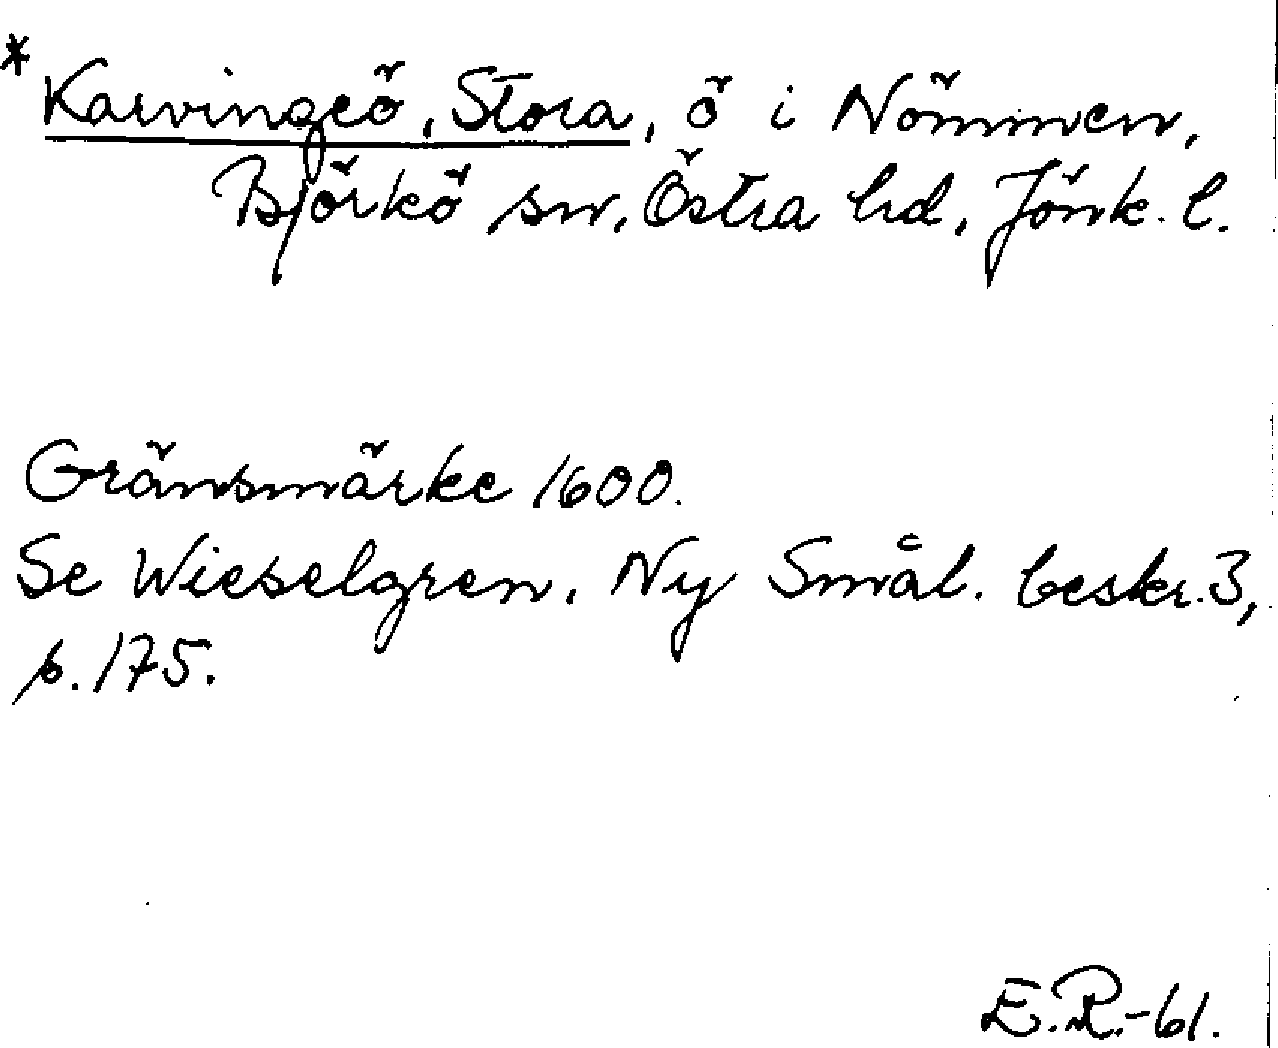 * Karvingeö, Stora, ö i Nömmen,
Björkö sn, Östra hd, Jönk. l.
Gränsmärke 1600.
Se Wieselgren, Ny Smål. beskr. 3,
p. 175.
E.R.-61.